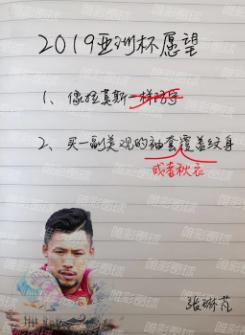 2019亚洲杯愿望
1、像拉莫斯一样踢球
2、买一副美观的袖套覆盖纹身
或者秋衣
张琳芃